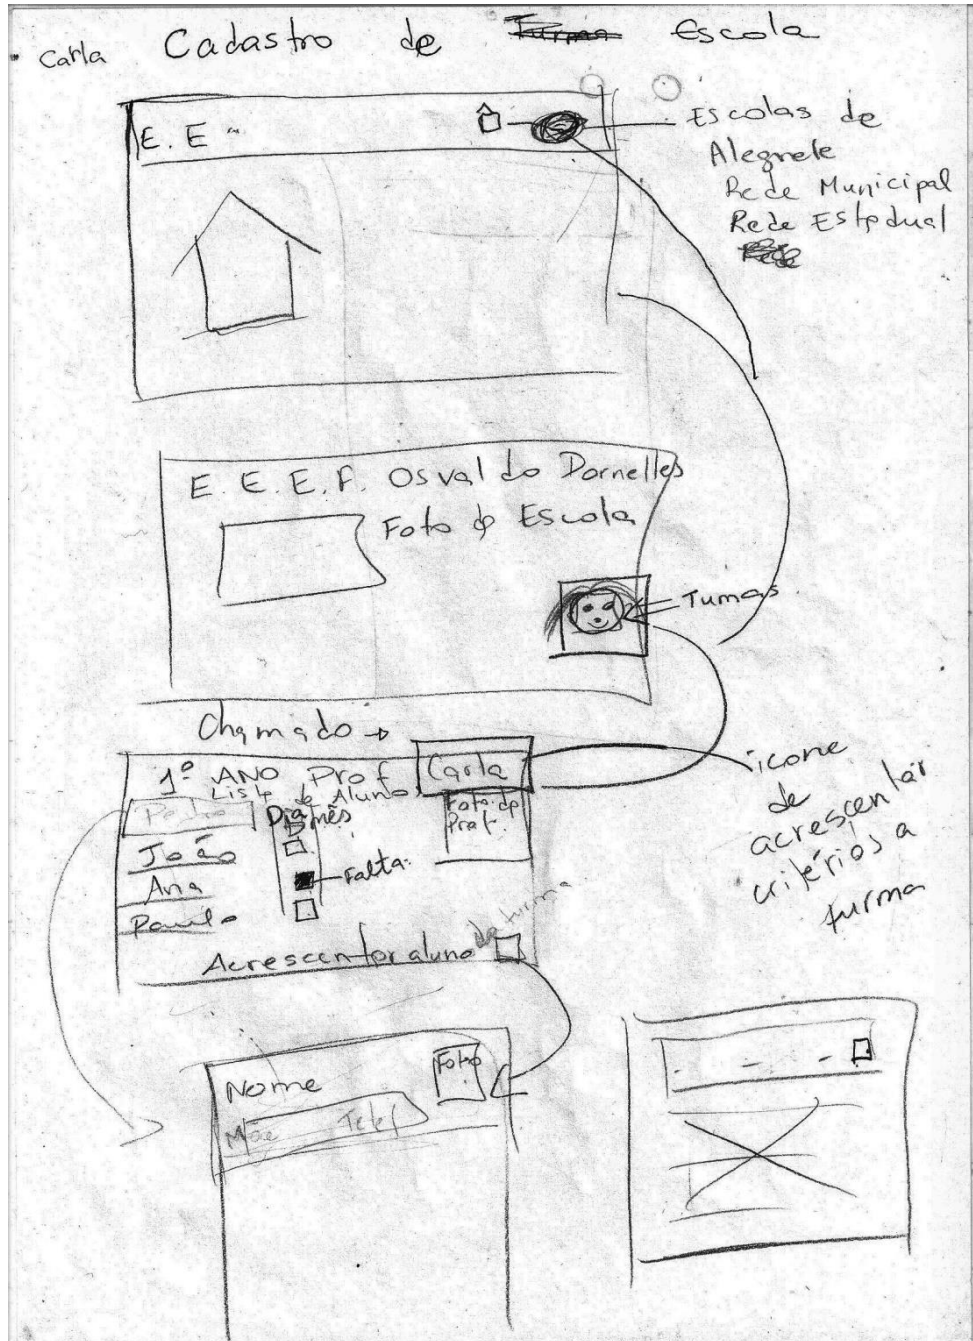 Carla
Cadastro de Escola
E. E
Escolas de
Alegrete
Rede Municipal
Rede Estadual
E. E. E. F. Osvaldo Dornelles
Foto da Escola
Tumas
Chamada
1º ANO Prof Carla
Lista de Aluno
Pedro
Dia mês
Foto da
Prof.
João
Ana
Falta
Paulo
Acrescentar aluno da turma
ícone
de
acrescentar
critérios a
turma
Nome
Foto
Mãe Telef